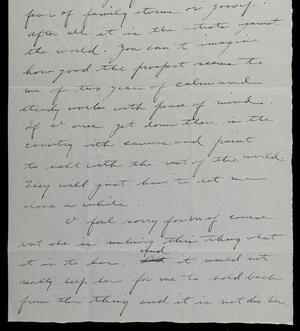 fear of family storms or gossip.
after all it is the artists against
the world. You can't imagine
how good the prospect seems to
me of two years of calm and
steady works with peace of mind.
If I once get down there in the
country with canvas and paint
to hell with the rest of the world.
They will just have to let me
alone a while.
I feel sorry for of course
but she is making this thing what
it is to her. and it would not
really help her for me to hold back
from the thing and it is not due her